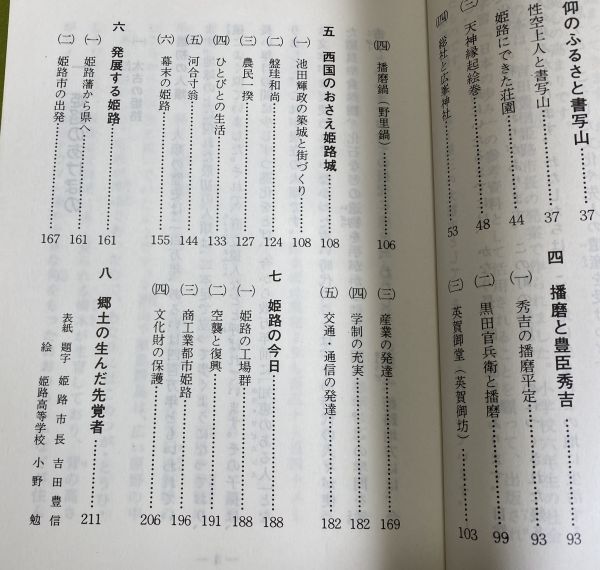 仰のふるさと書写山 37
性空上人と書写山 37
姫路にできた荘園 44
㈢ 天神縁起絵巻 48
㈣ 総社と広峯神社 53
四 播磨と豊臣秀吉 93
㈠ 秀吉の播磨平定 93
㈡ 黒田官兵衛と播磨 99
㈢ 英賀御堂（英賀御坊） 103
㈣ 播磨鍋（野里鍋） 106
五 西国のおさえ姫路城 108
㈠ 池田輝政の築城と街づくり 108
㈡ 盤珪和尚 124
㈢ 農民一揆 127
㈣ ひとびとの生活 133
㈤ 河合寸翁 144
㈥ 幕末の姫路 155
六 発展する姫路 161
㈠ 姫路藩から県へ 161
㈡ 姫路市の出発 167
㈢ 産業の発達 169
㈣ 学制の充実 182
㈤ 交通・通信の発達 182
七 姫路の今日 188
㈠ 姫路の工場群 188
㈡ 空襲と復興 191
㈢ 商工業都市姫路 196
㈣ 文化財の保護 206
八 郷土の生んだ先覚者 211
表紙 題字 姫路市長 吉田豊信
絵 姫路高等学校 小野 勉